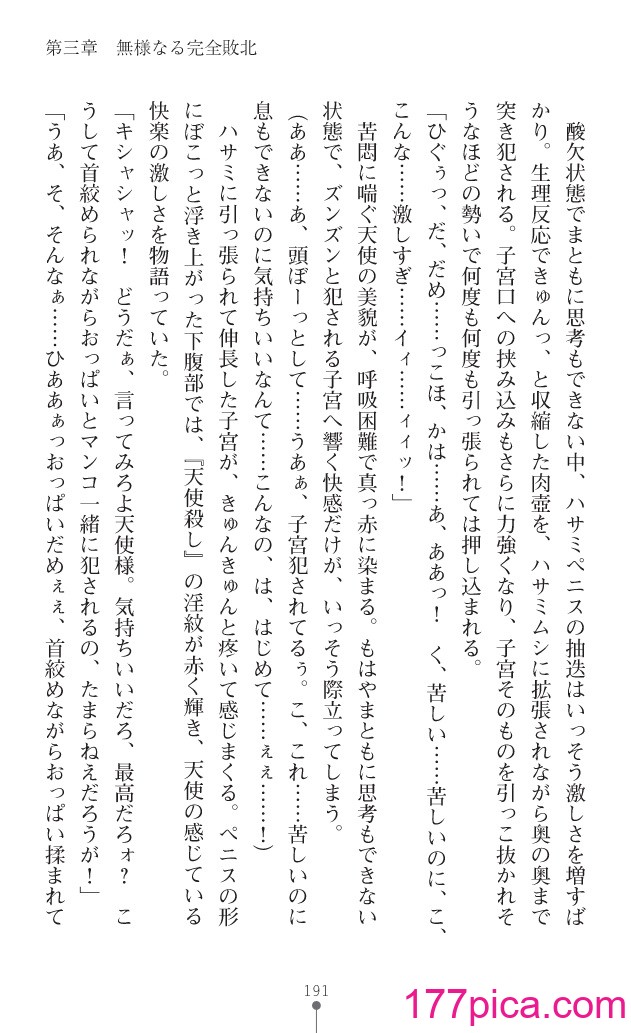 第三章　無様なる完全敗北
　酸欠状態でまともに思考もできない中、ハサミペニスの抽迭はいっそう激しさを増すば
かり。生理反応できゅんっ、と収縮した肉壺を、ハサミムシに拡張されながら奥の奥まで
突き犯される。子宮口への挟み込みもさらに力強くなり、子宮そのものを引っこ抜かれそ
うなほどの勢いで何度も何度も引っ張られては押し込まれる。
「ひぐぅっ、だ、だめ……っこほ、かは……あ、ああっ！　く、苦しい……苦しいのに、こ、
こんな……激しすぎ……イィ……ィィッ！」
　苦悶に喘ぐ天使の美貌が、呼吸困難で真っ赤に染まる。もはやまともに思考もできない
状態で、ズンズンと犯される子宮へ響く快感だけが、いっそう際立ってしまう。
（ああ……あ、頭ぼーっとして……うあぁ、子宮犯されてるぅ。こ、これ……苦しいのに
息もできないのに気持ちいいなんて……こんなの、は、はじめて……ぇぇ……！）
　ハサミに引っ張られて伸長した子宮が、きゅんきゅんと疼いて感じまくる。ペニスの形
にぼこっと浮き上がった下腹部では、『天使殺し』の淫紋が赤く輝き、天使の感じている
快楽の激しさを物語っていた。
「キシャシャッ！　どうだぁ、言ってみろよ天使様。気持ちいいだろ、最高だろォ？　こ
うして首絞められながらおっぱいとマンコ一緒に犯されるの、たまらねえだろうが！」
「うあ、そ、そんなぁ……ひああぁっおっぱいだめぇぇ、首絞めながらおっぱい揉まれて
191
177pica.com